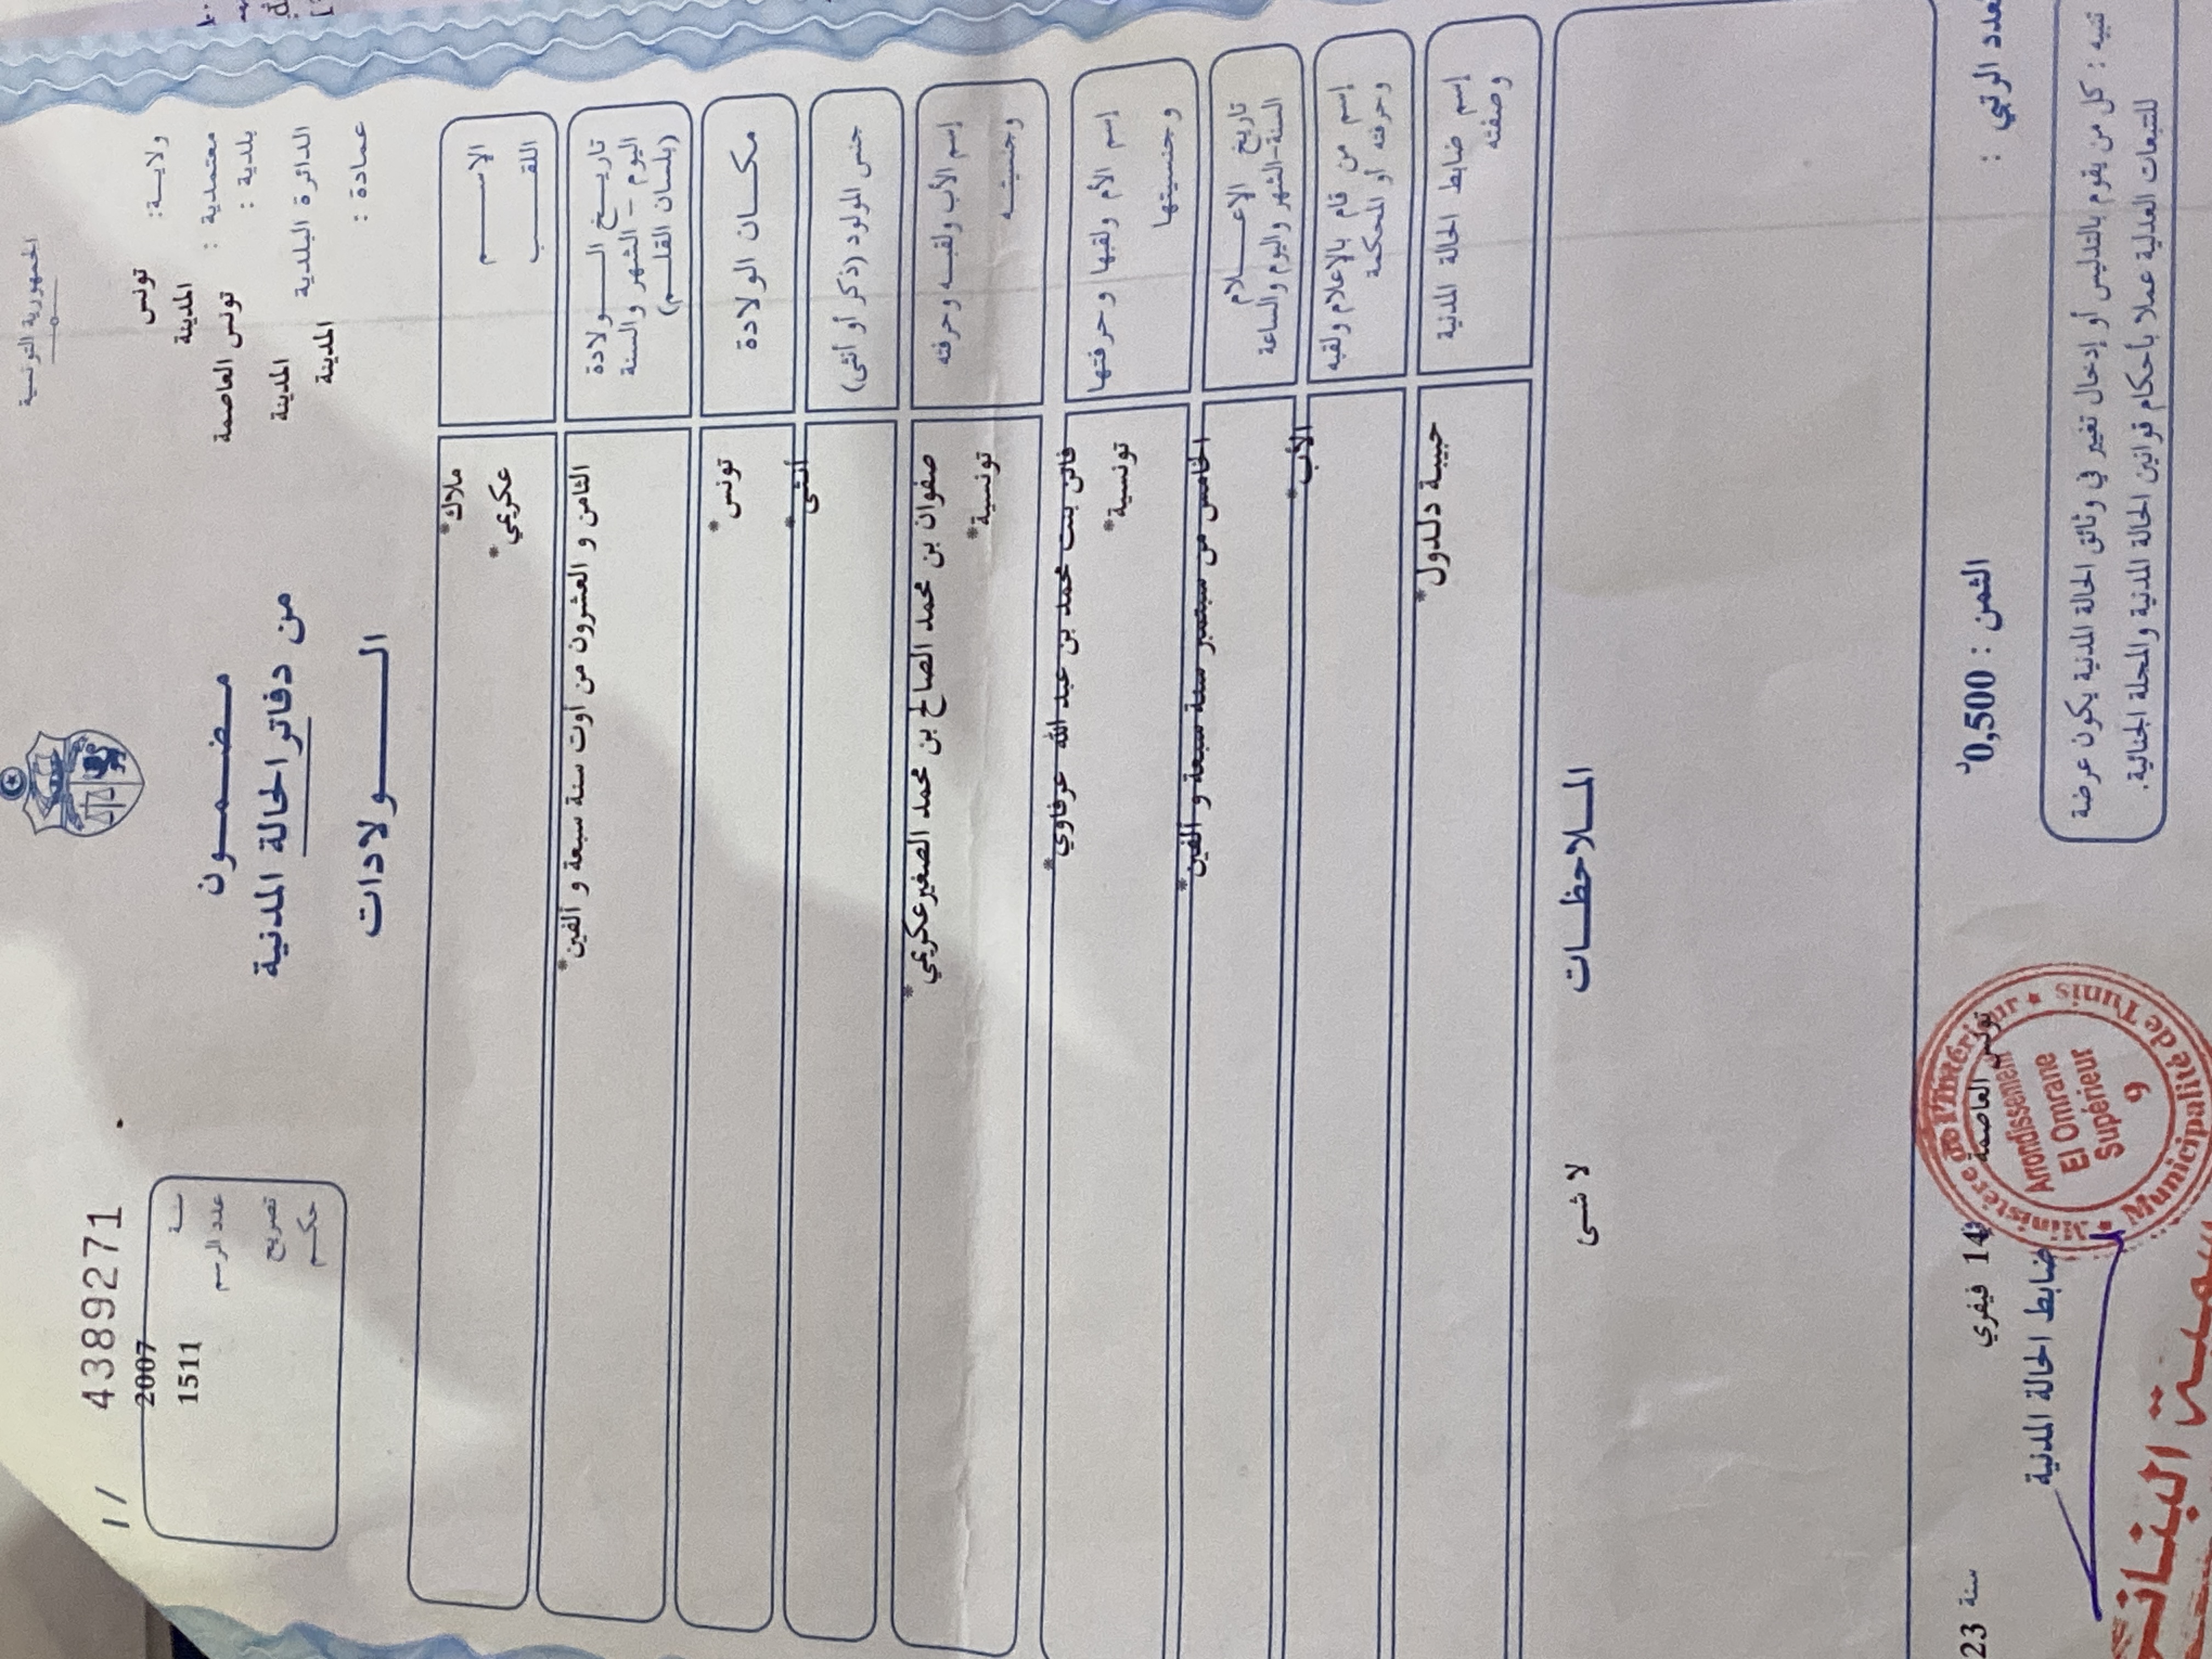 الجمهورية التونسية
ولاية: تونس
معتمدية : المدينة
بلدية : تونس العاصمة
الدائرة البلدية المدينة
عمادة : المدينة
4389271 / 1
سنة 2007
عدد الرسم 1511
تصريح
حكم
مضمون
من دفاتر الحالة المدنية
الولادات
الاسم *ملاك
اللقب *عكريمي
تاريخ الولادة
اليوم - الشهر والسنة
(بلسان القلم)
الثامن و العشرون من أوت سنة سبعة و ألفين*
مكان الولادة *تونس
جنس المولود (ذكر أو أنثى) *أنثى
إسم الأب ولقبه وحرفته صفوان بن محمد الصالح بن محمد الصغير عكريمي*
وجنسيته *تونسية
إسم الأم ولقبها وحرفتها فاتن بنت محمد بن عبد الله عرفاوي*
وجنسيتها *تونسية
تاريخ الإعلام
السنة-الشهر واليوم والساعة
الخامس من سبتمبر سنة سبعة و ألفين*
إسم من قام بالإعلام ولقبه
وحرفته أو المحكمة
*الأب
إسم ضابط الحالة المدنية
وصفته
حبيبة دلدول*
الملاحظات
لا شىء
العدد الرتبي :
الثمن : 0,500د
تونس العاصمة 14 فيفري سنة 23
ضابط الحالة المدنية
تنبيه : كل من يقوم بالتدليس أو إدخال تغيير في وثائق الحالة المدنية يكون عرضة
للتتبعات العدلية عملا بأحكام قوانين الحالة المدنية والمجلة الجنائية.
Ministère de l'Intérieur
Municipalité de Tunis
Arrondissement
El Omrane
Supérieur
9